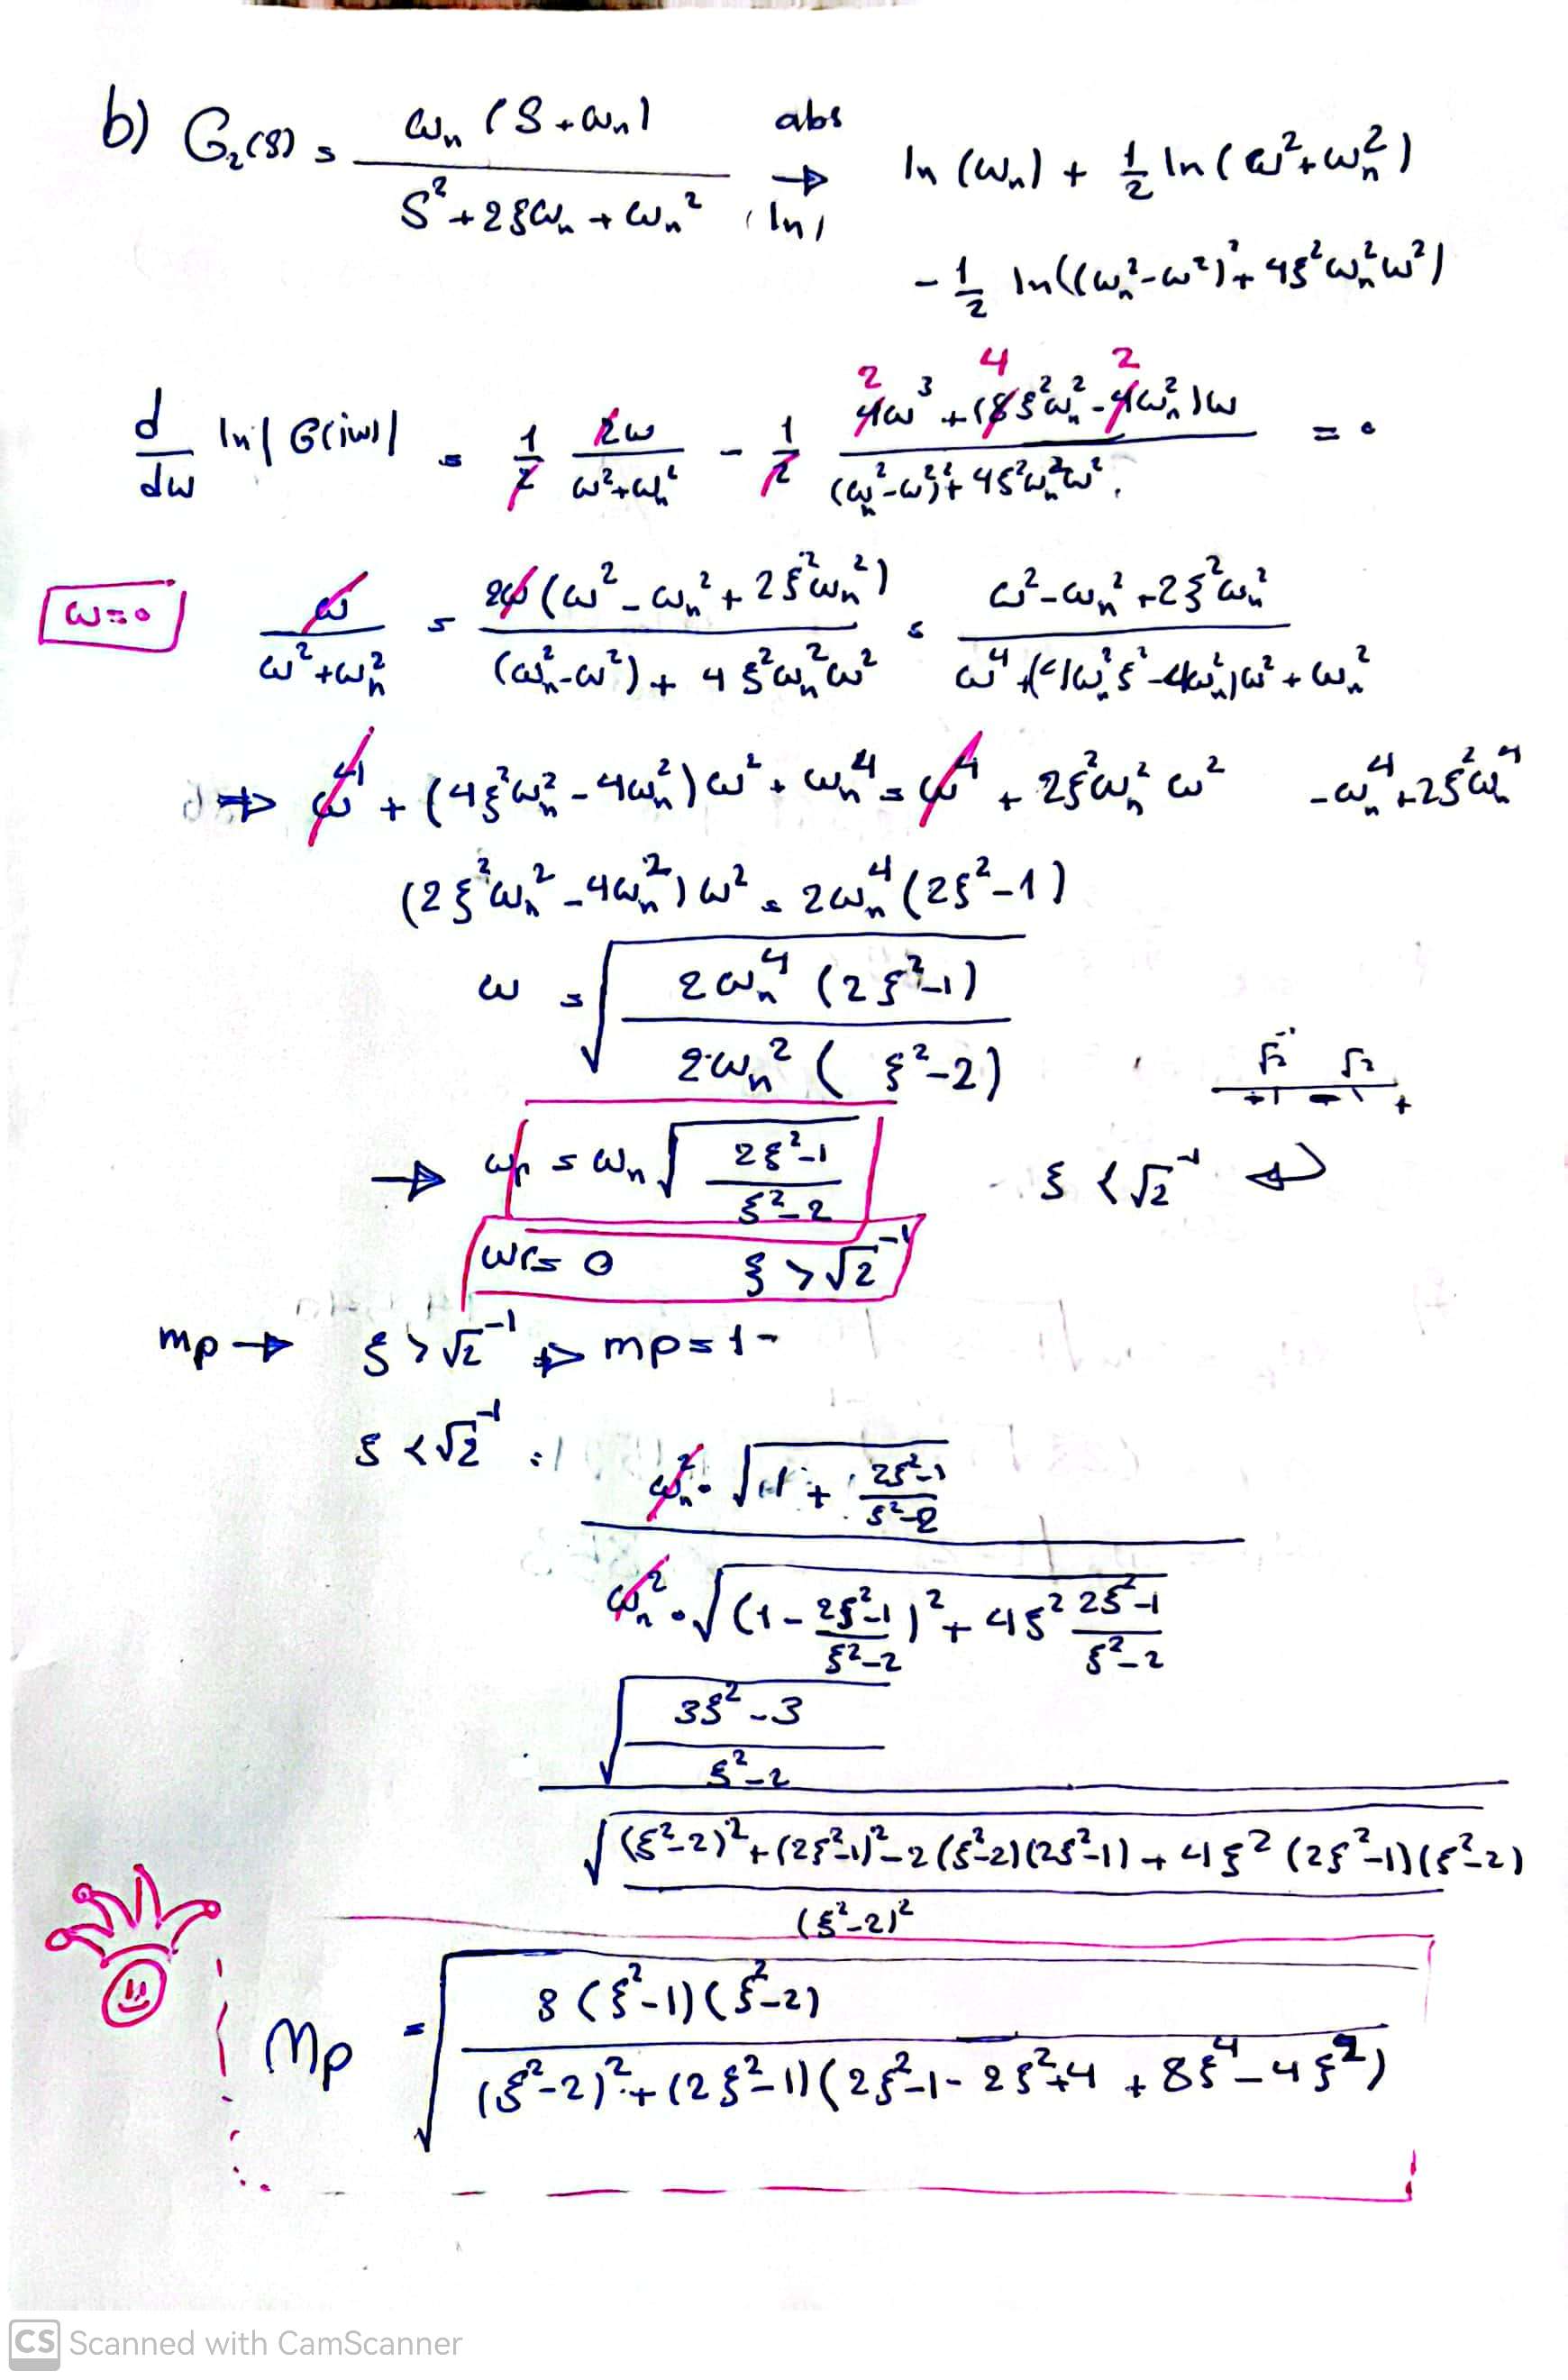 b) G₂(s) = ωₙ (S + ωₙ) / S² + 2ξωₙ + ωₙ² abs → (ln) ln (ωₙ) + 1/2 ln (ω² + ωₙ²)
- 1/2 ln((ωₙ² - ω²)² + 4ξ²ωₙ²ω²)
d/dω ln|G(iω)| = 1/2 2ω / ω² + ωₙ² - 1/2 4ω³ + (8ξ²ωₙ² - 4ωₙ²)ω / (ωₙ² - ω²)² + 4ξ²ωₙ²ω² = 0
2 4 2
ω = 0 ω / ω² + ωₙ² = 2ω (ω² - ωₙ² + 2ξ²ωₙ²) / (ωₙ² - ω²) + 4ξ²ωₙ²ω² = ω² - ωₙ² + 2ξ²ωₙ² / ω⁴ + (4ωₙ²ξ² - 4ωₙ²)ω² + ωₙ²
⇒ ω⁴ + (4ξ²ωₙ² - 4ωₙ²) ω² + ωₙ⁴ = ω⁴ + 2ξ²ωₙ² ω² - ωₙ⁴ + 2ξ²ωₙ⁴
(2ξ²ωₙ² - 4ωₙ²) ω² = 2ωₙ⁴ (2ξ² - 1)
ω = √(2ωₙ⁴ (2ξ² - 1) / 2ωₙ² (ξ² - 2))
√2⁻¹ √2
+ - +
→ ωr = ωₙ √(2ξ² - 1 / ξ² - 2) ξ < √2⁻¹
ωr = 0 ξ > √2⁻¹
mp → ξ > √2⁻¹ ⇒ mp = 1
ξ < √2⁻¹ : ωₙ² · √(1 + 2ξ² - 1 / ξ² - 2) / ωₙ² · √((1 - 2ξ² - 1 / ξ² - 2)² + 4ξ² 2ξ² - 1 / ξ² - 2)
√(3ξ² - 3 / ξ² - 2) / √((ξ² - 2)² + (2ξ² - 1)² - 2(ξ² - 2)(2ξ² - 1) + 4ξ² (2ξ² - 1)(ξ² - 2) / (ξ² - 2)²)
Mp = √(3 (ξ² - 1)(ξ² - 2) / (ξ² - 2)² + (2ξ² - 1)(2ξ² - 1 - 2ξ² + 4 + 8ξ⁴ - 4ξ²))
CS Scanned with CamScanner